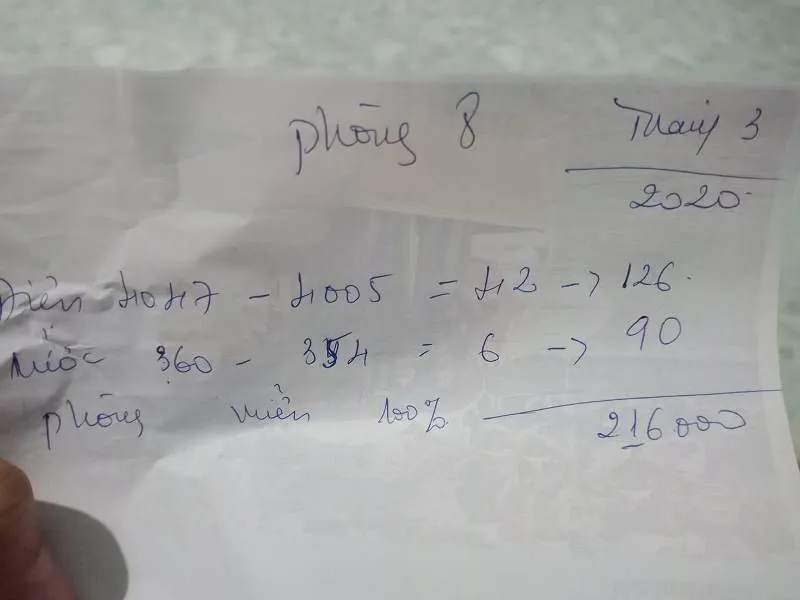 Phòng 8
Tháng 3
2020
Điện 4047 - 4005 = 42 -> 126.
Nước 360 - 354 = 6 -> 90
Phòng miễn 100%
216.000